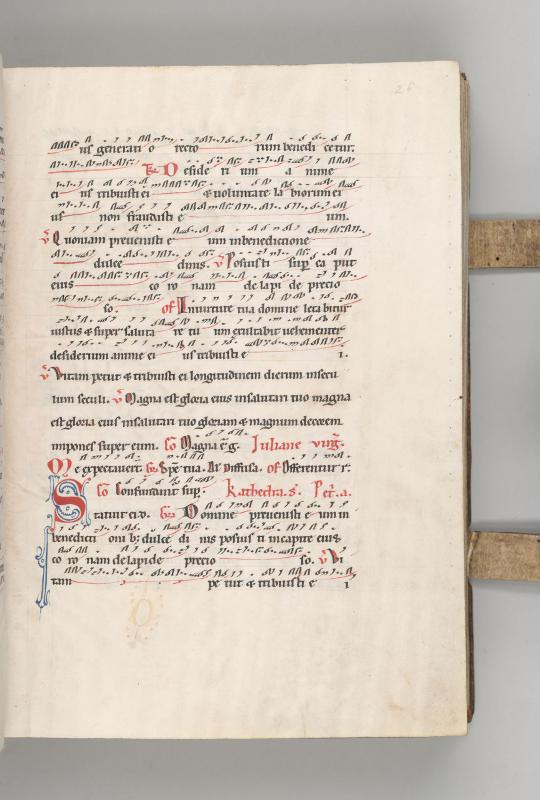 26
us generati o recto rum benedi cetur.
Tr. D eside ri um a nime
ei us tribuisti ei & uoluntate la biorum ei
us non fraudasti e um.
V Quoniam preuenisti e um in benedictione
dulce dinis. V Posuisti sup ca put
eius co ro nam de lapi de precio
so. of In uirtute tua domine letabitur
iustus & super saluta re tu um exultabit uehementer
desiderium anime ei us tribuisti e i.
V Vitam petiit & tribuisti ei longitudinem dierum in secu
lum seculi. V Magna est gloria eius in salutari tuo magna
est gloria eius in salutari tuo gloriam & magnum decorem
impones super eum. Co Magna e g. Juliane virg.
Me expectauerunt Spe tua. Diffusa. of Offerentur r.
Co Confundant sup. Kathedra s. Pet. a.
Statuit ei d. Gr Domine preuenisti e um in
benedicti oni b; dulce di nis posuisti in capite eius
co ro nam de lapide precio so. V Vi
tam pe tiit & tribuisti e i